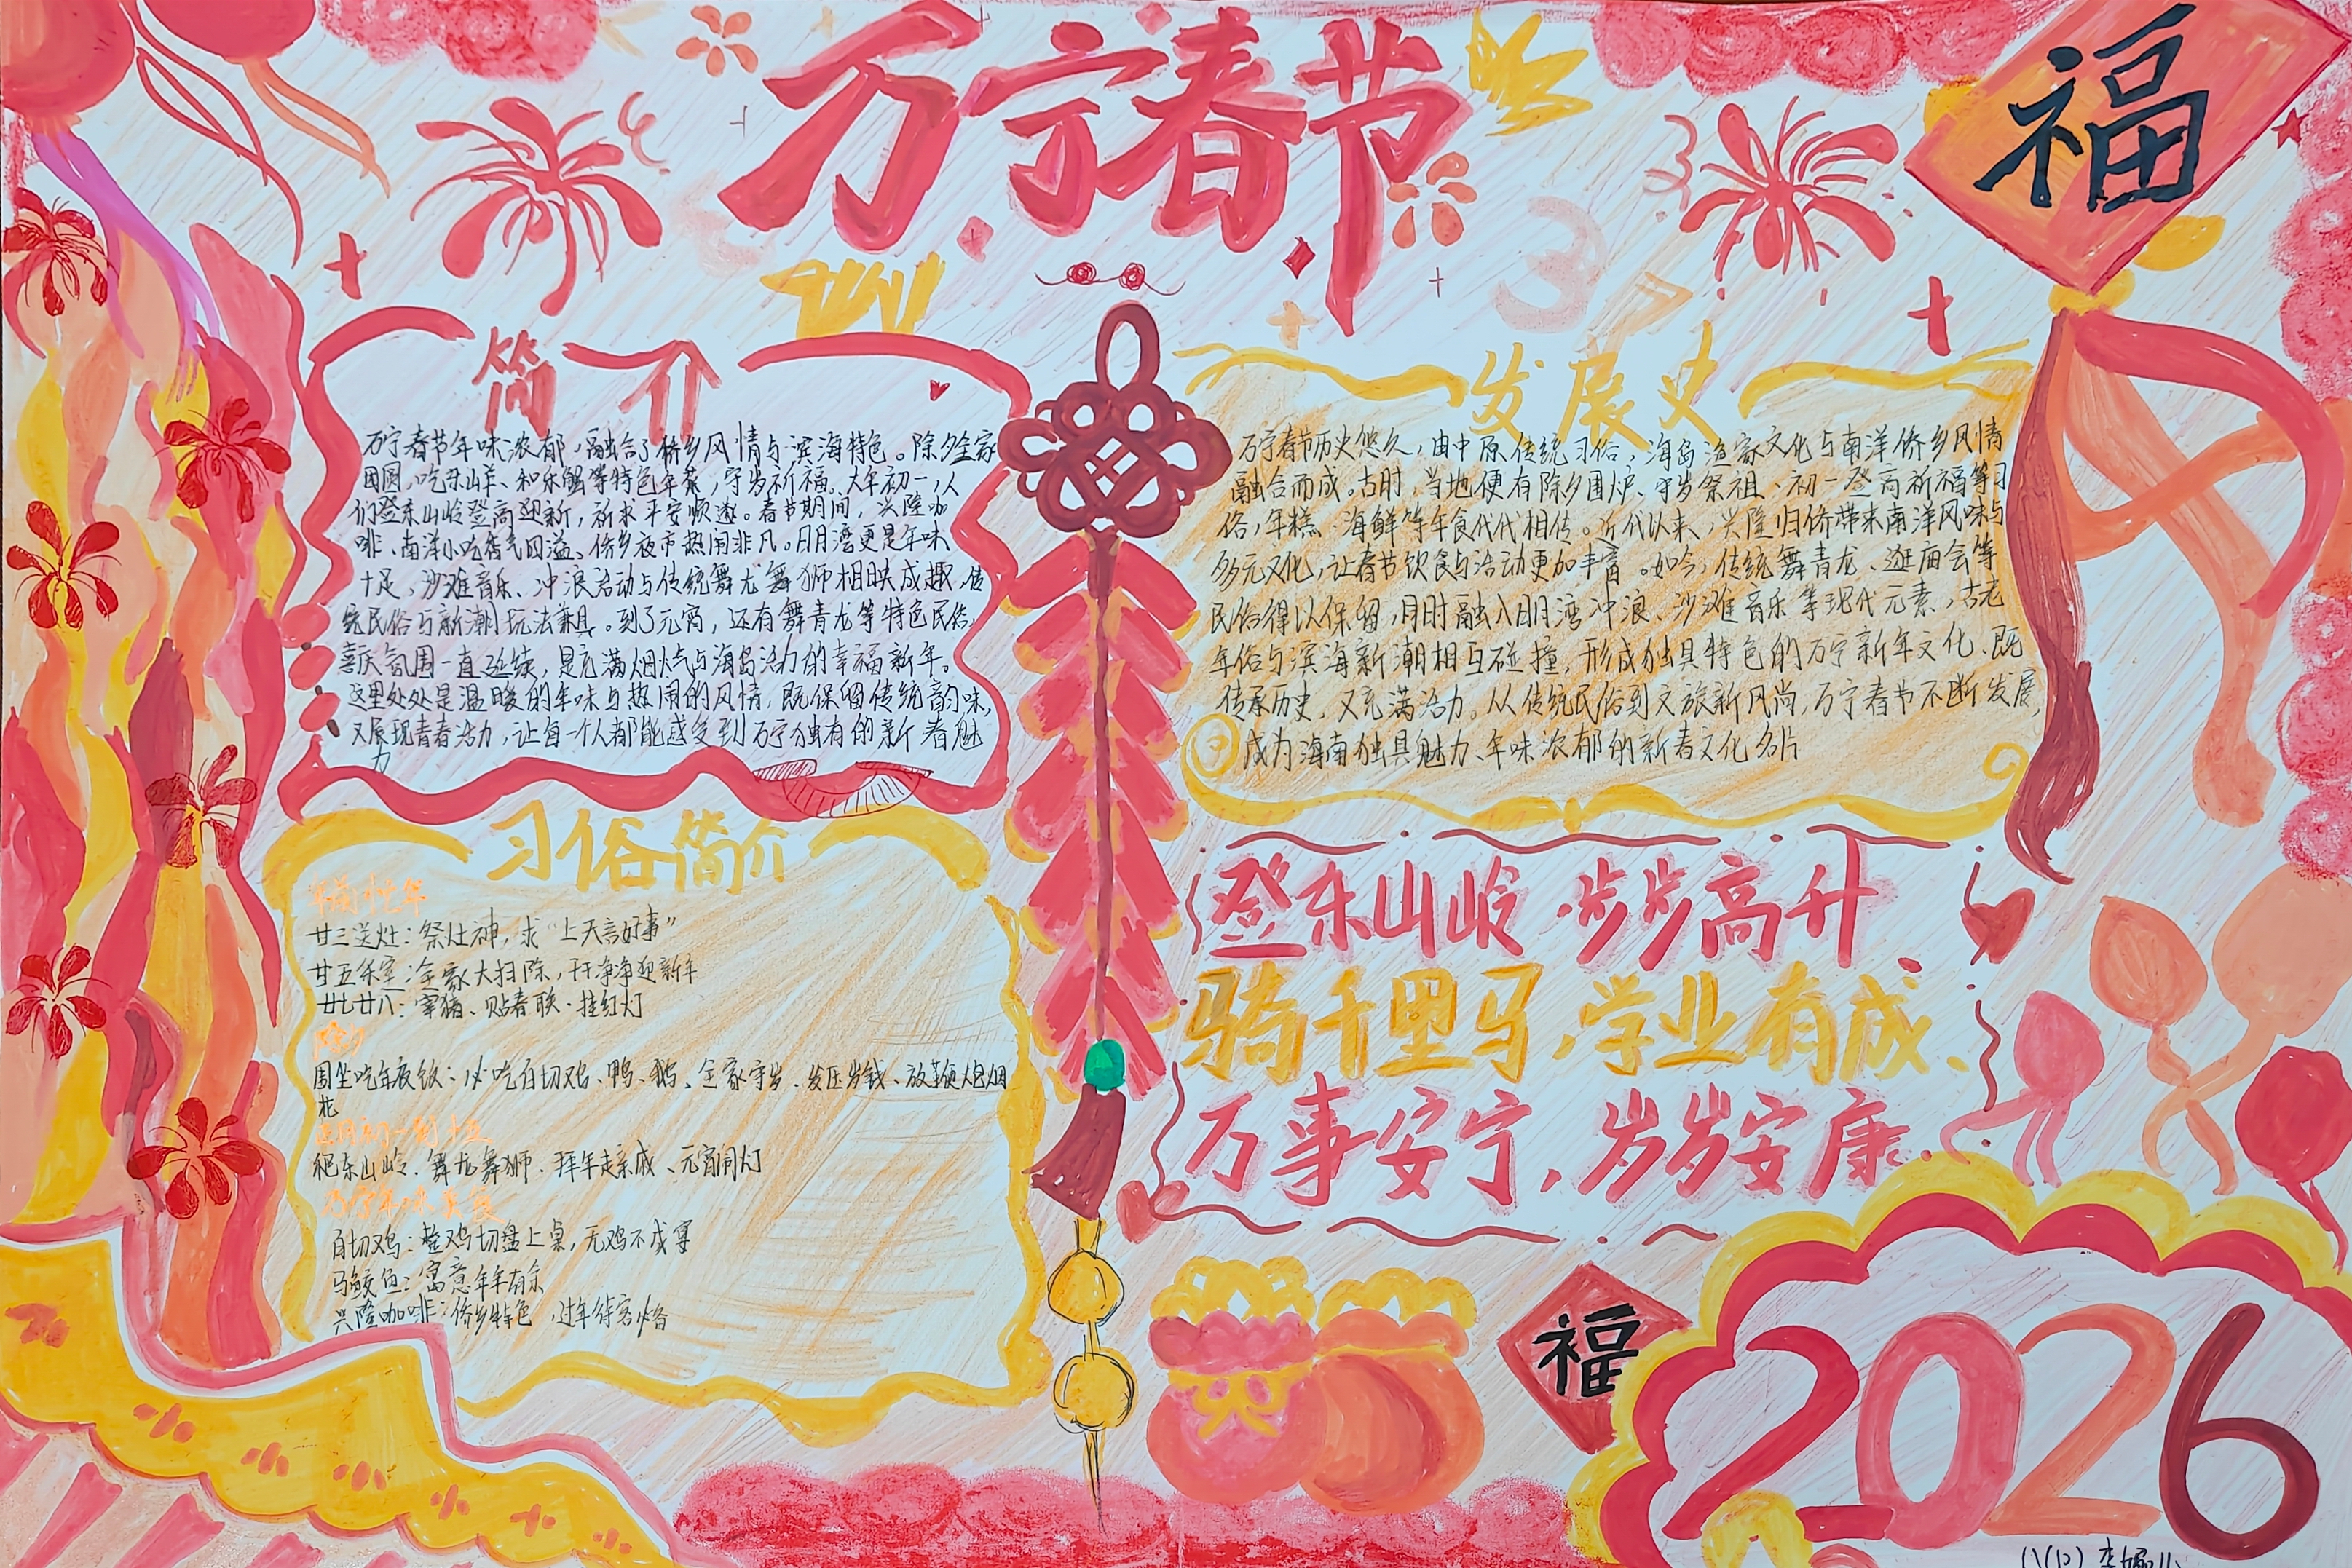 万宁春节
福
简介
万宁春节年味浓郁，融合了侨乡风情与滨海特色。除夕全家
团圆，吃东山羊、和乐蟹等特色年菜，守岁祈福。大年初一，人
们登东山岭登高迎新，祈求平安顺遂。春节期间，兴隆咖
啡、南洋小吃香气四溢、侨乡夜市热闹非凡。日月湾更是年味
十足，沙滩音乐、冲浪活动与传统舞龙舞狮相映成趣，传
统民俗与新潮玩法兼具。到了元宵，还有舞青龙等特色民俗，
喜庆氛围一直延续，是充满烟火气与海岛活力的幸福新年。
这里处处是温暖的年味与热闹的风情，既保留传统韵味，
又展现青春活力，让每一个人都能感受到万宁独有的新春魅
力
发展史
万宁春节历史悠久，由中原传统习俗，海岛渔家文化与南洋侨乡风情
融合而成。古时，当地便有除夕围炉、守岁祭祖、初一登高祈福等习
俗，年糕、海鲜等年食代代相传。近代以来，兴隆归侨带来南洋风味与
多元文化，让春节饮食与活动更加丰富。如今，传统舞青龙、逛庙会等
民俗得以保留，同时融入日月湾冲浪、沙滩音乐等现代元素，古老
年俗与滨海新潮相互碰撞，形成独具特色的万宁新年文化、既
传承历史，又充满活力。从传统民俗到文旅新风尚，万宁春节不断发展，
成为海南独具魅力、年味浓郁的新春文化名片
习俗简介
年前忙年
廿三送灶：祭灶神，求“上天言好事”
廿五采室：全家大扫除，干净净迎新年
廿七廿八：宰猪、贴春联·挂红灯
除夕
围坐吃年夜饭：必吃白切鸡、鸭、鹅、全家守岁、发压岁钱、放鞭炮烟
花
正月初一到十五
爬东山岭、舞龙舞狮、拜年走亲戚、元宵闹灯
万宁年味美食
白切鸡：整鸡切盘上桌，无鸡不成宴
马鲛鱼：寓意年年有余
兴隆咖啡：侨乡特色，过年待客必备
登东山岭·步步高升
骑千里马，学业有成、
万事安宁，岁岁安康.
福
2026